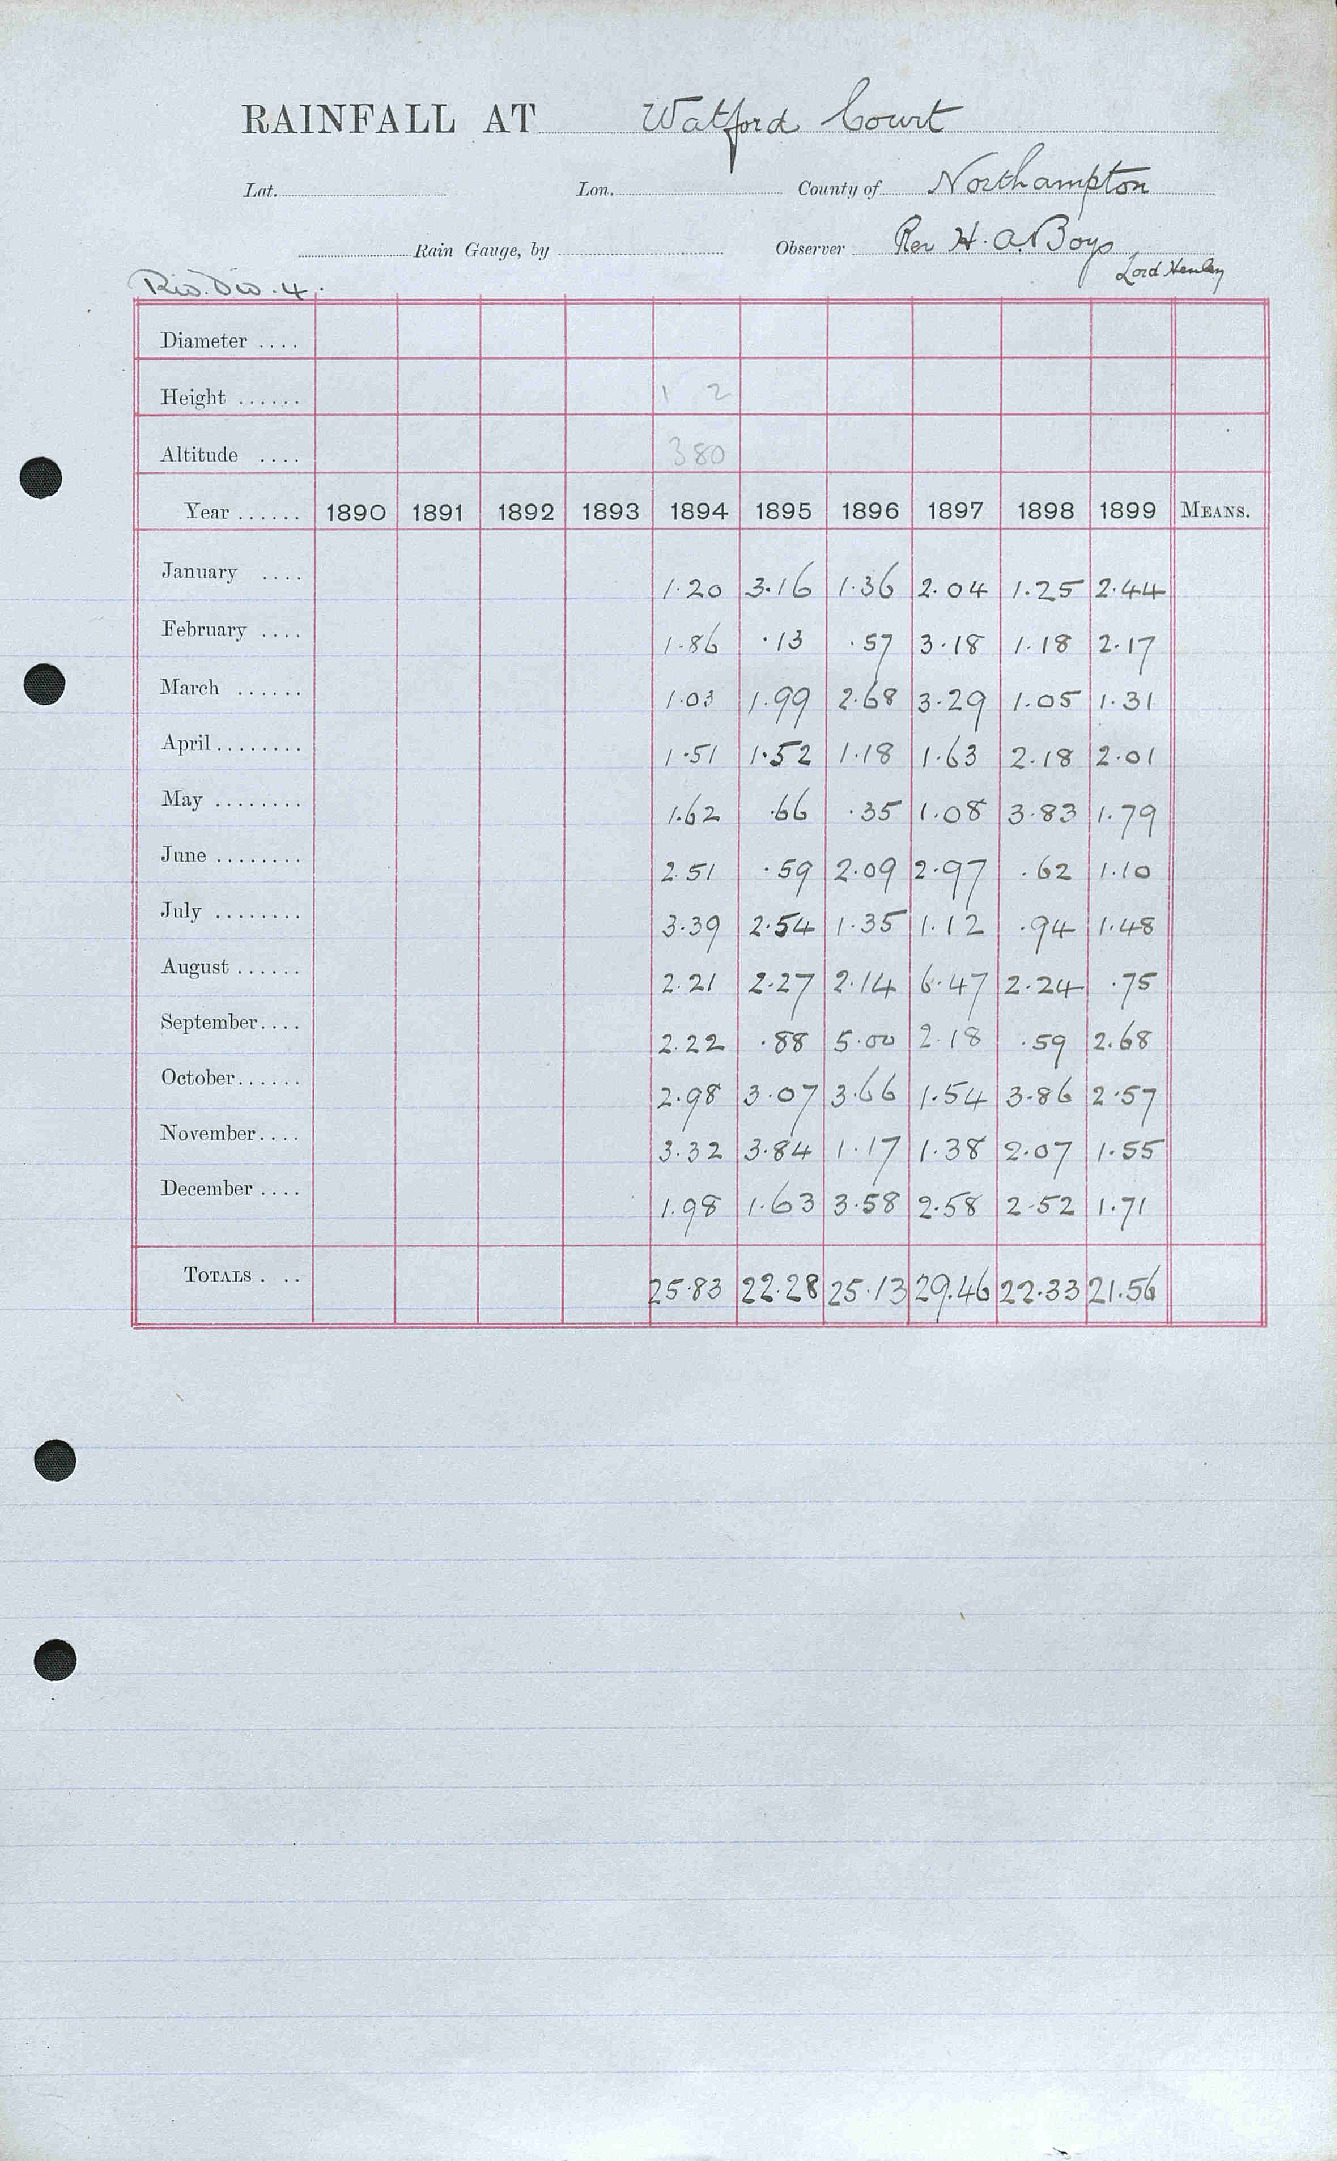 RAINFALL AT Watford Court
Lat. Lon. County of Northampton
Rain Gauge, by Observer Rev H. A. Boys
Lord Henley
Riv. Div. 4.
Diameter ....
Height ...... 1 2
Altitude .... 380
Year ...... 1890 1891 1892 1893 1894 1895 1896 1897 1898 1899 MEANS.
January .... 1.20 3.16 1.36 2.04 1.25 2.44
February .... 1.86 .13 .57 3.18 1.18 2.17
March ...... 1.03 1.99 2.68 3.29 1.05 1.31
April ........ 1.51 1.52 1.18 1.63 2.18 2.01
May ........ 1.62 .66 .35 1.08 3.83 1.79
June ........ 2.51 .59 2.09 2.97 .62 1.10
July ........ 3.39 2.54 1.35 1.12 .94 1.48
August ...... 2.21 2.27 2.14 6.47 2.24 .75
September.... 2.22 .88 5.00 2.18 .59 2.68
October...... 2.98 3.07 3.66 1.54 3.86 2.57
November.... 3.32 3.84 1.17 1.38 2.07 1.55
December .... 1.98 1.63 3.58 2.58 2.52 1.71
TOTALS . .. 25.83 22.28 25.13 29.46 22.33 21.56